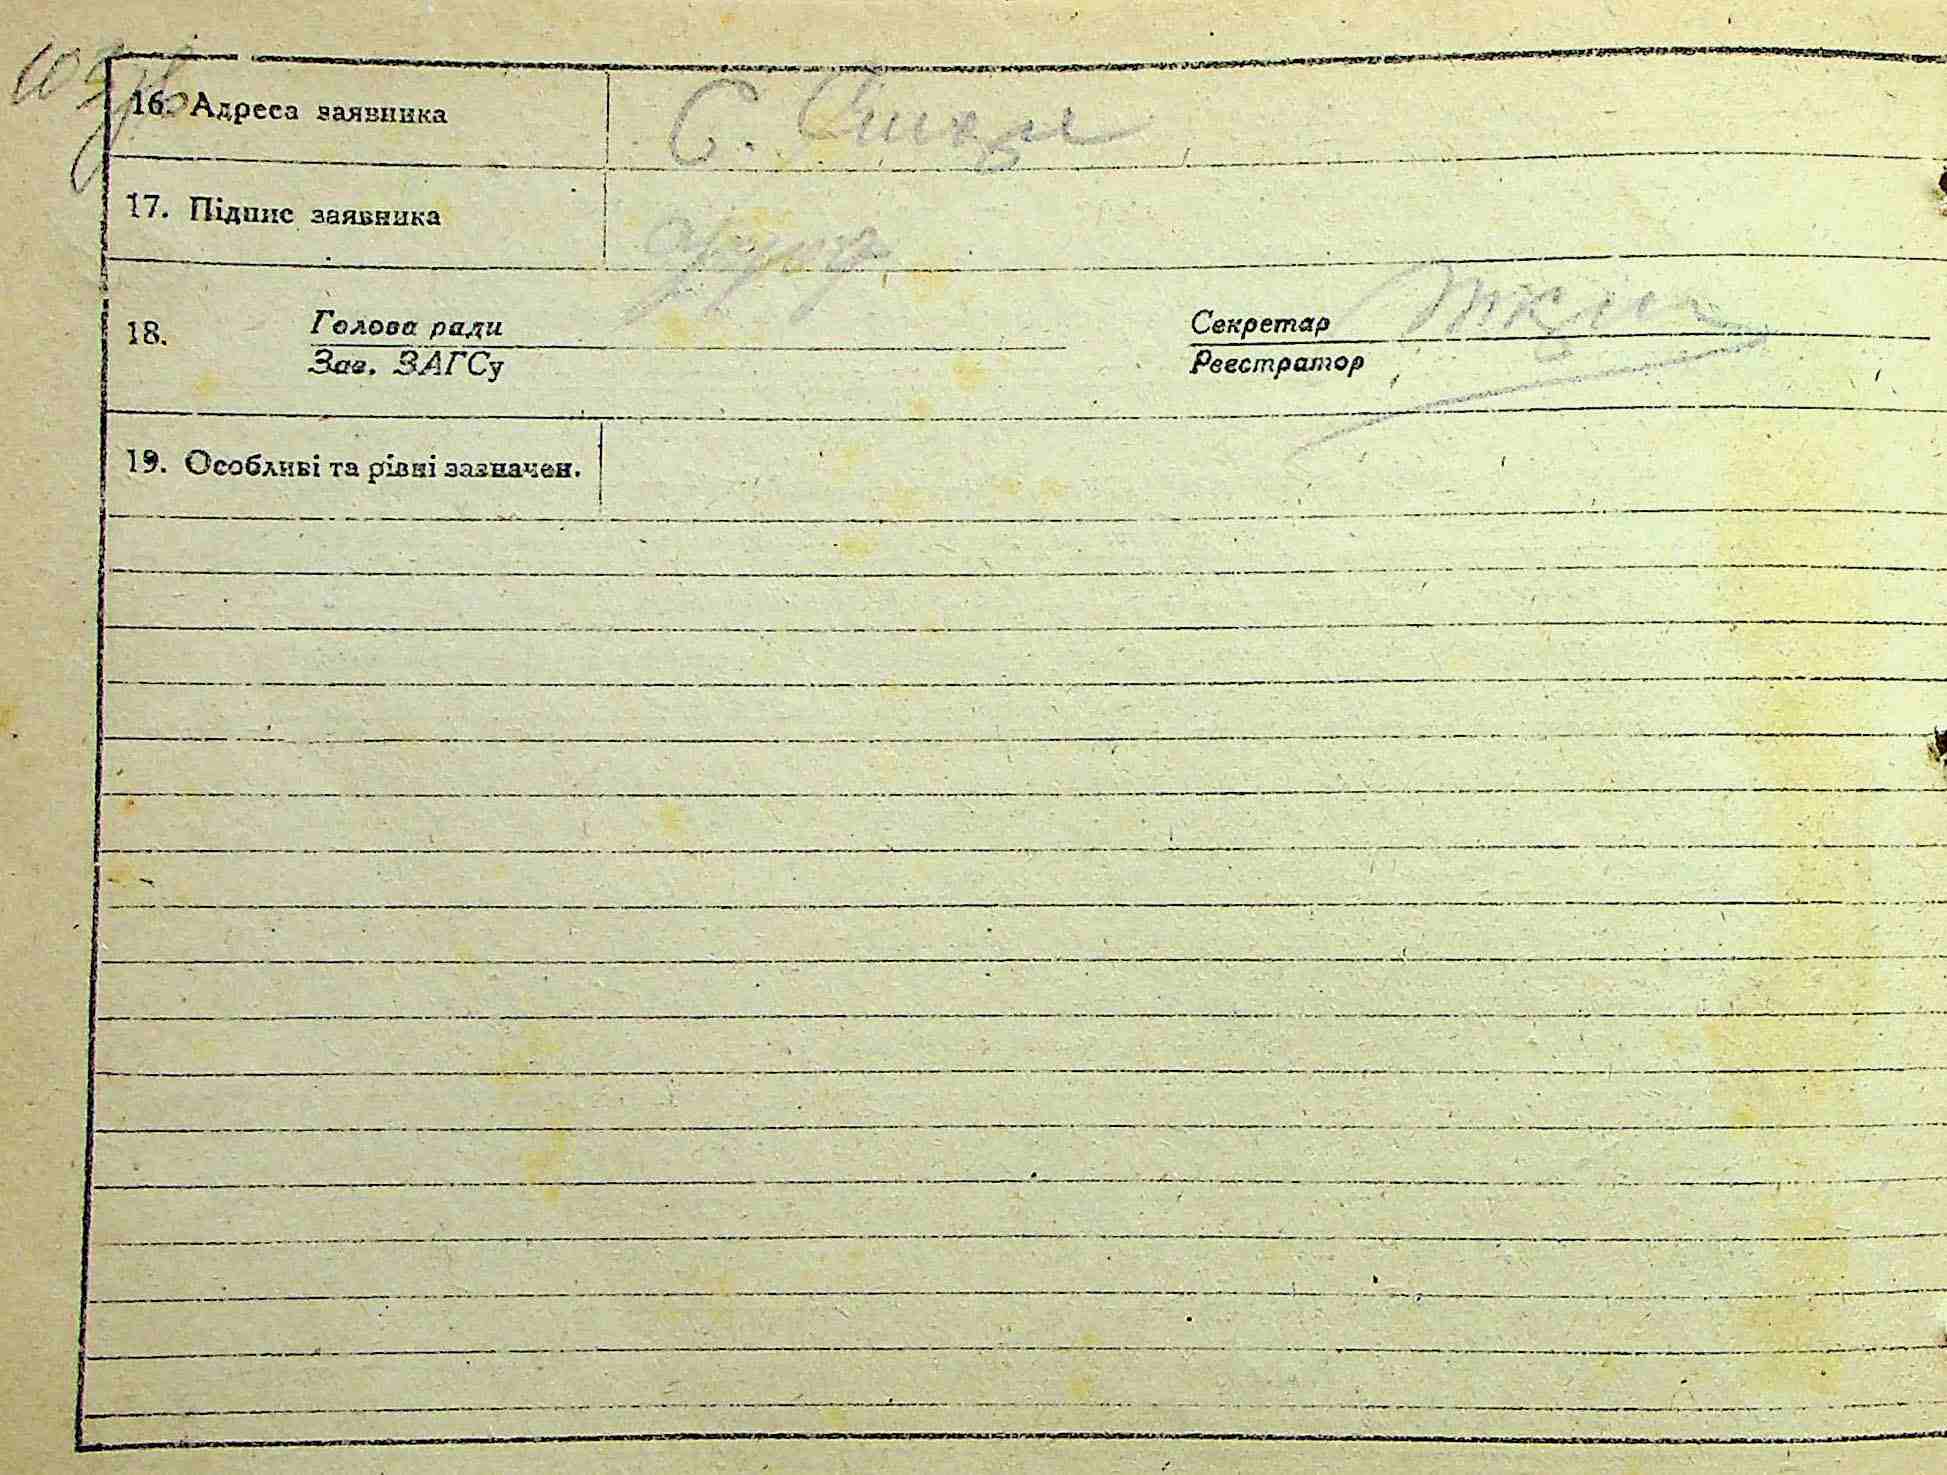 16. Адреса заявника С.
17. Підпис заявника
18. Голова ради Секретар
Зав. ЗАГСу Реєстратор
19. Особливі та рівні зазначен.